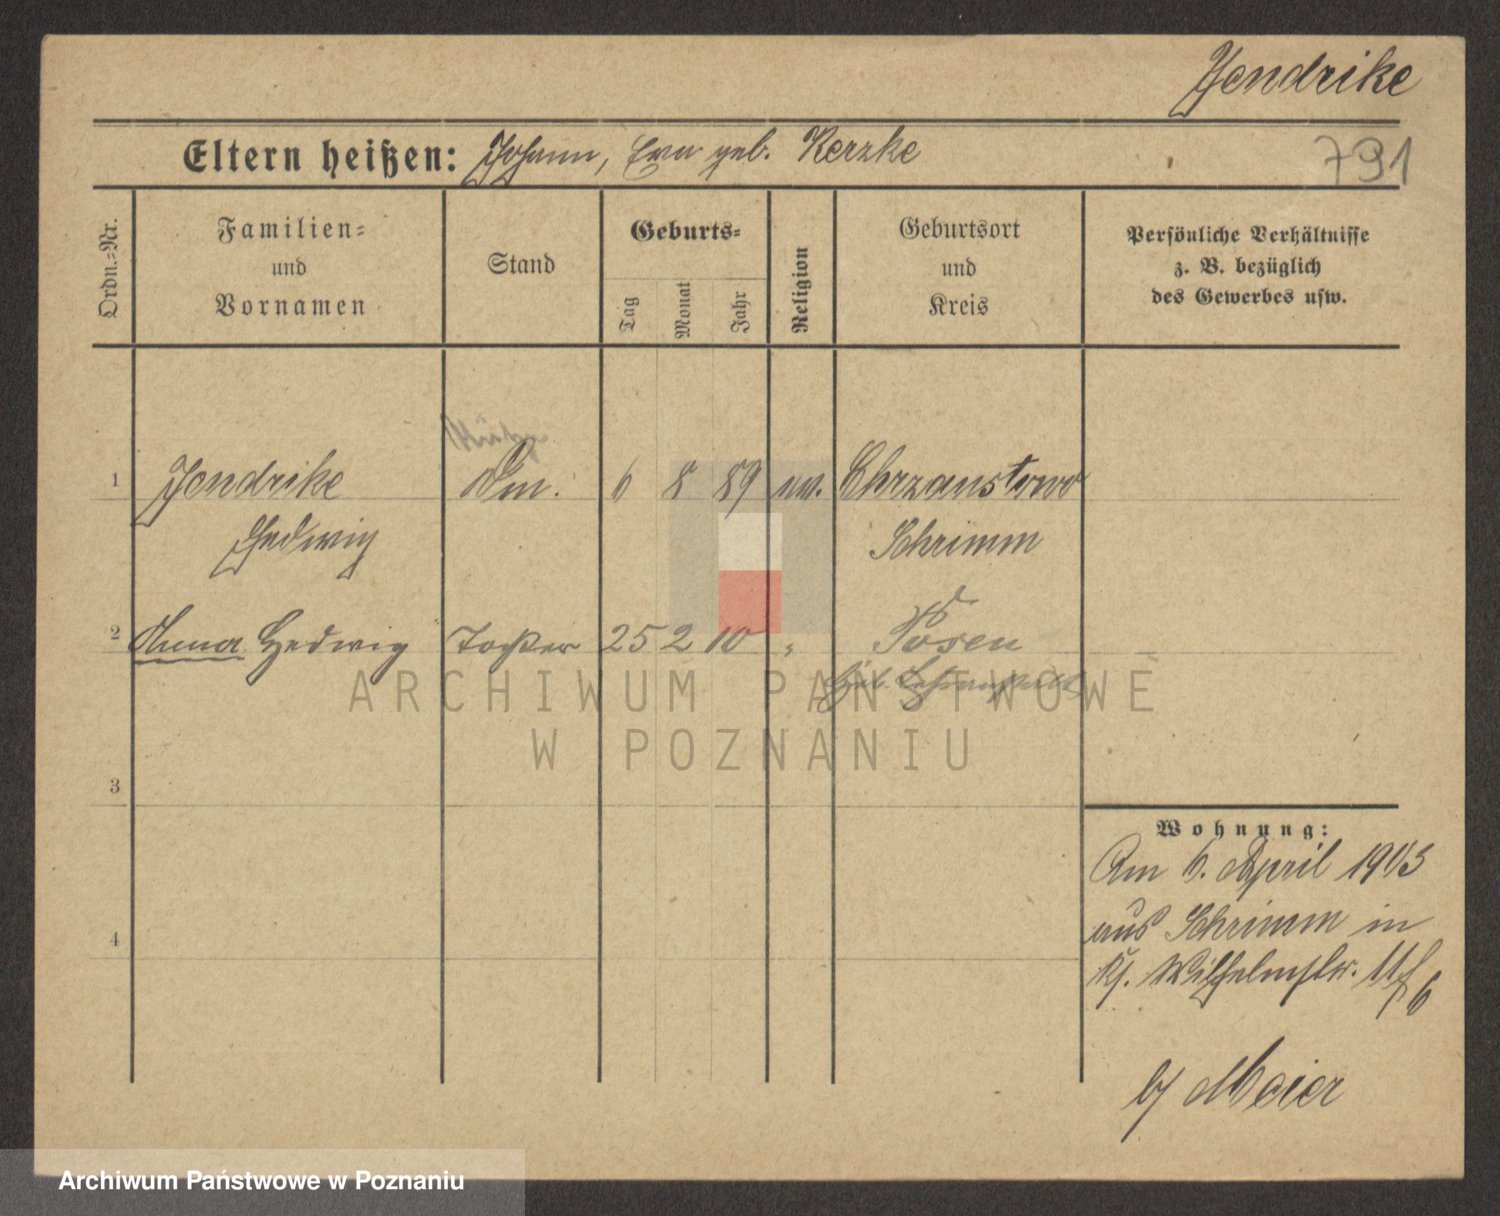 Jendrike
Eltern heißen: Johann, Eva geb. Kerzke
791
Ordn.-Nr.
Familien-
und
Vornamen
Stand
Geburts-
Tag
Monat
Jahr
Religion
Geburtsort
und
Kreis
Persönliche Verhältnisse
z. B. bezüglich
des Gewerbes usw.
1 Jendrike Dm. 6 8 89 ev. Chrzanstowo
Hedwig Schrimm
2 Anna Hedwig Tochter 25 2 10 " Posen
ARCHIWUM PAŃSTWOWE
W POZNANIU
3
4
Wohnung:
Am 6. April 1903
aus Schrimm in
Wilhelmstr.
b/ Meier
Archiwum Państwowe w Poznaniu